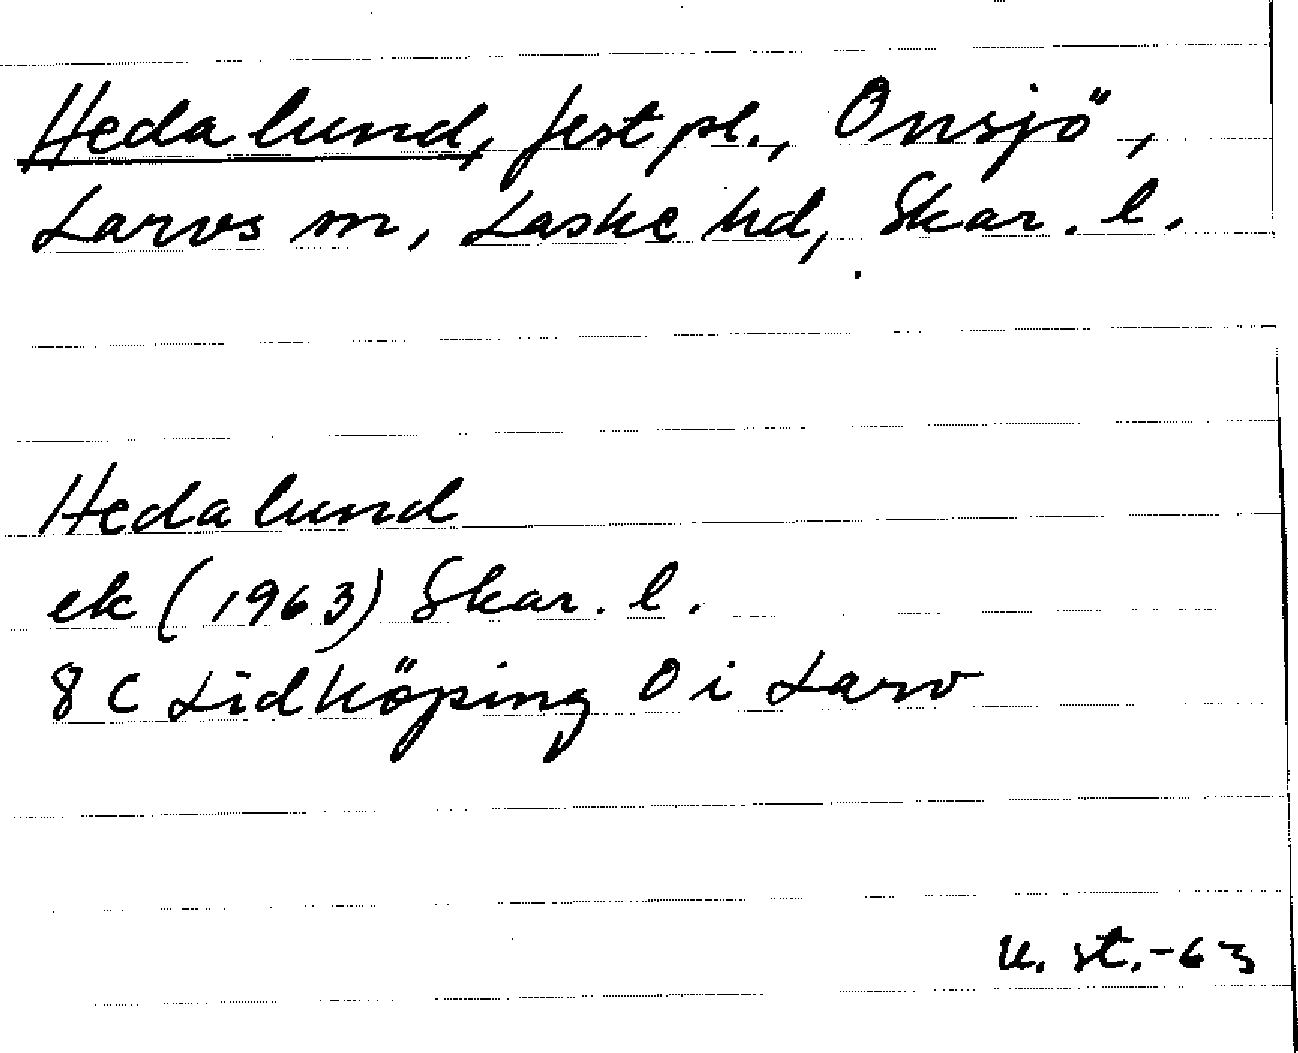 Hedalund, festpl., Onsjö,
Larvs sn, Laske hd, Skar. l.
Hedalund
ek (1963) Skar. l.
8 C Lidköping O i Larv
u. st. -63